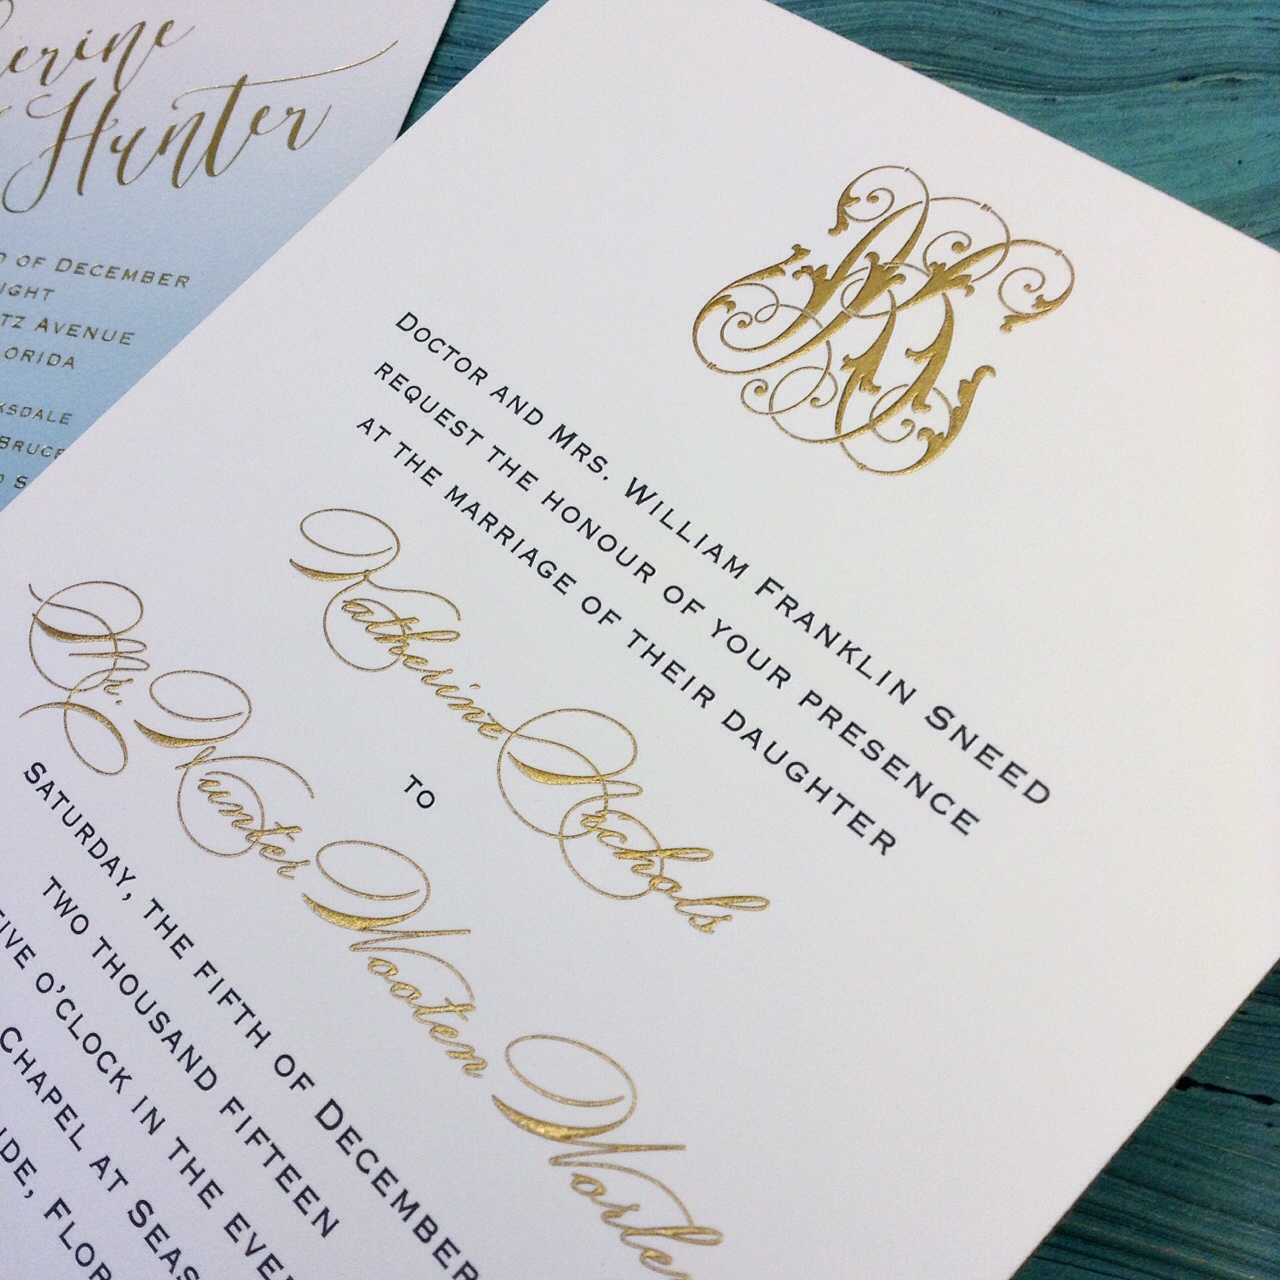 erine
Hunter
D OF DECEMBER
IGHT
TZ AVENUE
ORIDA
KSDALE
BRUCE
D S
DOCTOR AND MRS. WILLIAM FRANKLIN SNEED
REQUEST THE HONOUR OF YOUR PRESENCE
AT THE MARRIAGE OF THEIR DAUGHTER
Katherine Nichols
TO
Mr. Hunter Wooten Worle
SATURDAY, THE FIFTH OF DECEMBER
TWO THOUSAND FIFTEEN
FIVE O'CLOCK IN THE EVE
CHAPEL AT SEAS
IDE, FLOR